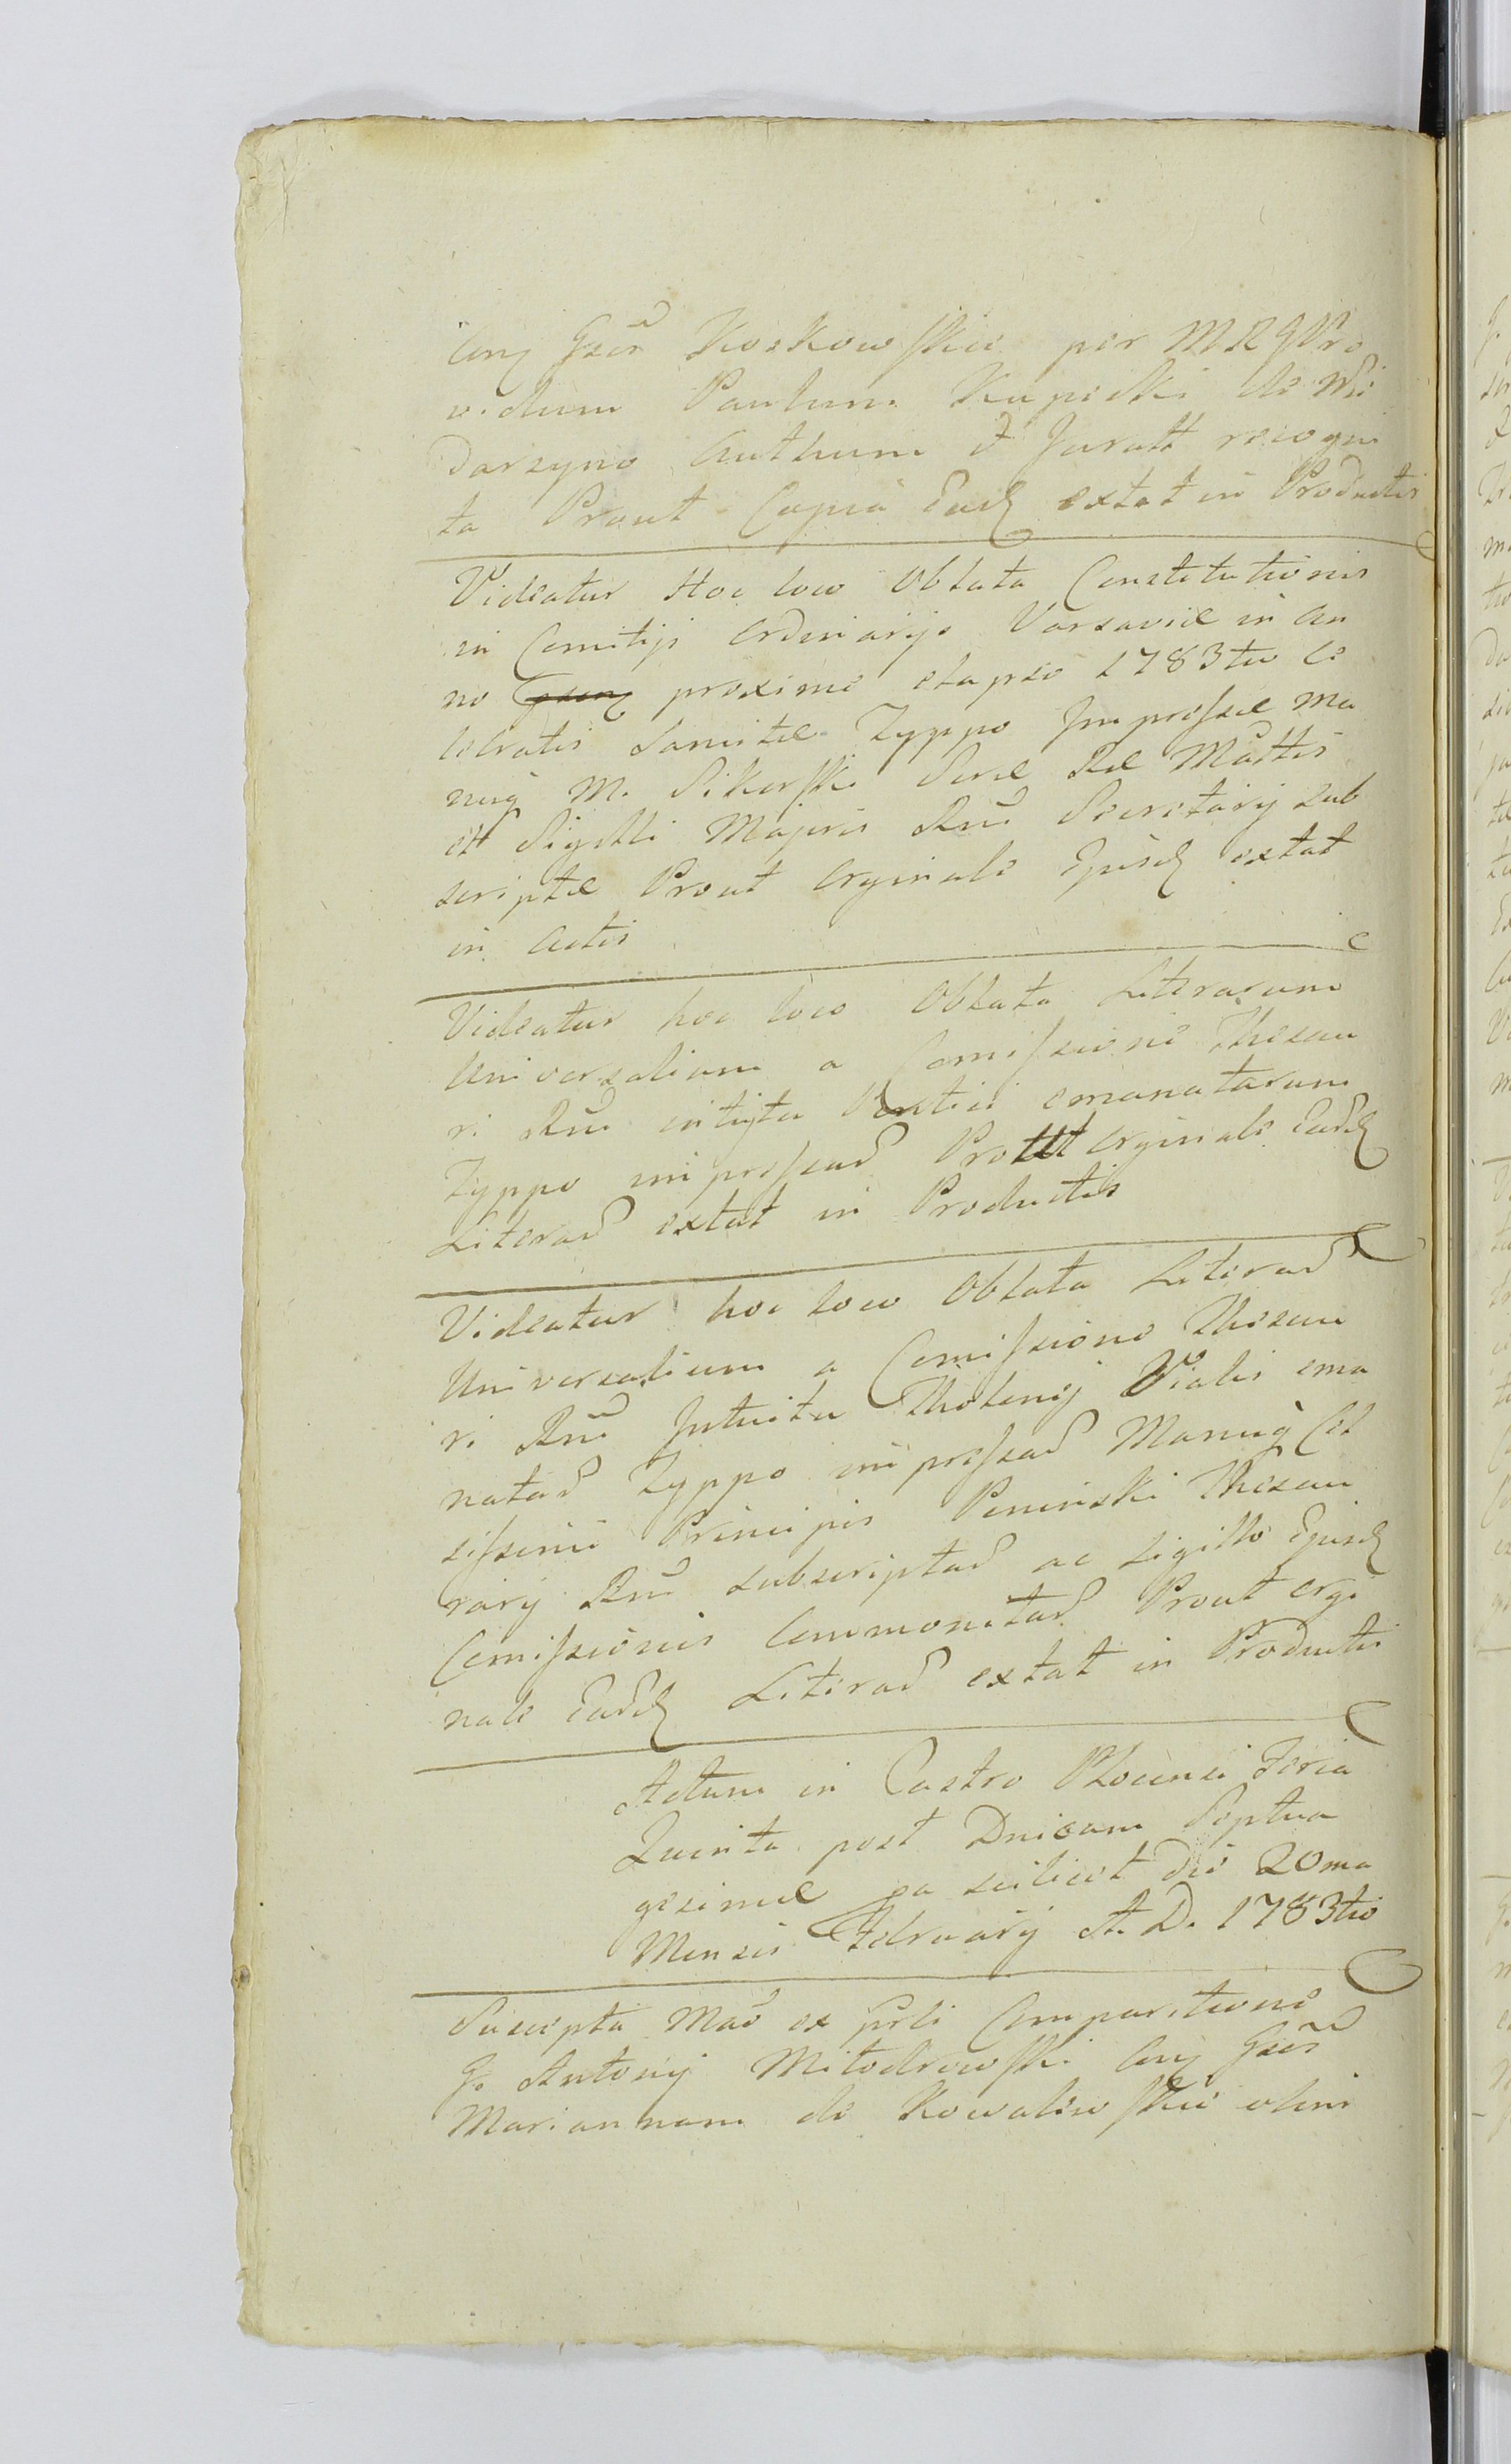 Conj Gser Koskowskie per MRGPro
vidum Paulum Kupiecki de Wu
darzyno Authum et Juratt recogni
ta Prout Copia Ead extat in Productis
Videatur Hoc loco Oblata Constitutionis
in Comitijs Ordinarijs Varsaviæ in An
no proxime elapso 1783tio Ce
lebratis Sancitæ Typpo Impressæ ma
nuq M. Sikorski Seræ Ræ Mattis
ett Sigilli Majoris Rni Secretarij sub
scriptæ Prout Orginale Ejusd extat
in Actis
Videatur hoc loco Oblata Literarum
Universalium a Comissione Thesau
ri Rni intuitu emanatarum
Typpo impressar Prout Orginale Eard
Literar extat in Productis
Videatur hoc loco Oblata Literar
Universalium a Comissione Thesau
ri Rni Intuitu Tholonij Vialis ema
natar Typpo impressar Manuq Cel
sissimi Principis Poninski Thesau
rarij Rni subscriptar ac sigillo Ejusd
Comissionis Communitar Prout Orgi
nale Eard Literar extat in Productis
Actum in Castro Plocensi Feria
Quinta post Dnicam Septua
gesimæ ea scilicet die 20ma
Mensis Februarij A. D. 1783tio
Suscepta Mac ex prli Comparitione
G. Antonij Miłodrowski Conj Gser
Mariannam de Kowalewskie olim